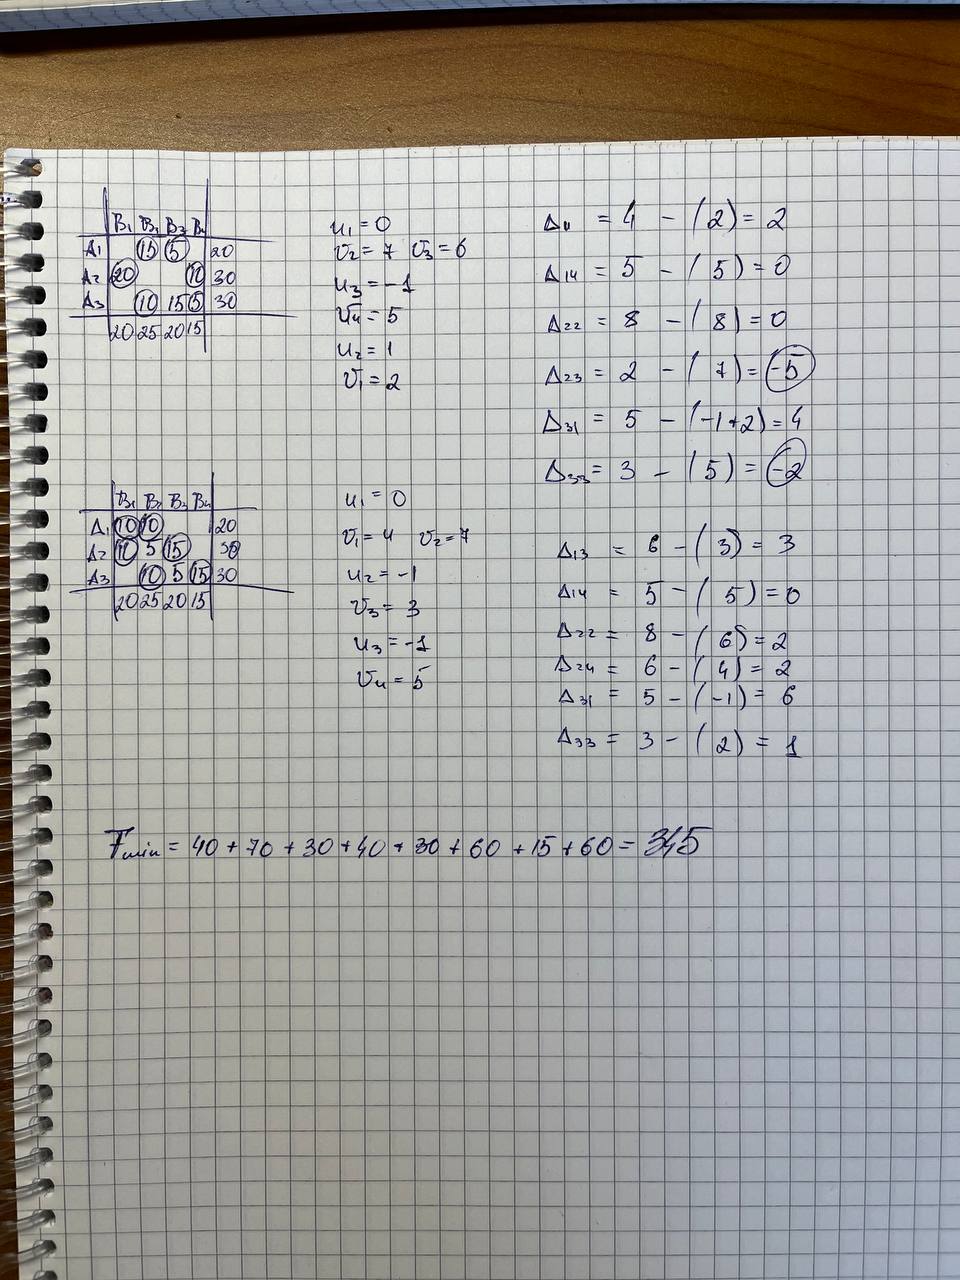 B₁ B₂ B₃ B₄
A₁ 15 5 20
A₂ 20 10 30
A₃ 10 15 5 30
20 25 20 15
u₁ = 0
v₂ = 7 v₃ = 6
u₃ = -1
v₄ = 5
u₂ = 1
v₁ = 2
Δ₁₁ = 4 - (2) = 2
Δ₁₄ = 5 - (5) = 0
Δ₂₂ = 8 - (8) = 0
Δ₂₃ = 2 - (7) = -5
Δ₃₁ = 5 - (-1+2) = 4
Δ₃₃ = 3 - (5) = -2
B₁ B₂ B₃ B₄
A₁ 10 10 20
A₂ 10 5 15 30
A₃ 10 5 15 30
20 25 20 15
u₁ = 0
v₁ = 4 v₂ = 7
u₂ = -1
v₃ = 3
u₃ = -1
v₄ = 5
Δ₁₃ = 6 - (3) = 3
Δ₁₄ = 5 - (5) = 0
Δ₂₂ = 8 - (6) = 2
Δ₂₄ = 6 - (4) = 2
Δ₃₁ = 5 - (-1) = 6
Δ₃₃ = 3 - (2) = 1
Fmin = 40 + 70 + 30 + 40 + 30 + 60 + 15 + 60 = 345